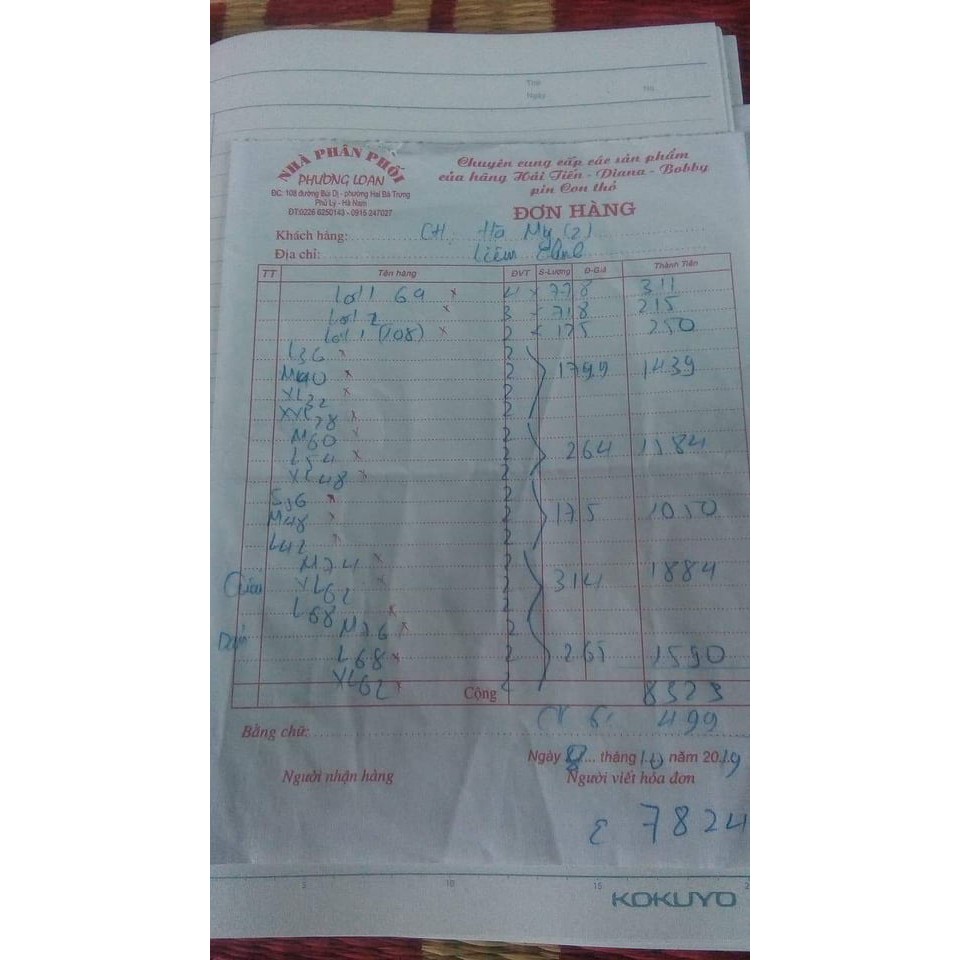 Thứ
Ngày No.
NHÀ PHÂN PHỐI
PHƯỢNG LOAN
ĐC: 108 đường Bùi Dị - phường Hai Bà Trưng
Phủ Lý - Hà Nam
ĐT:0226 6250143 - 0915 247027
Chuyên cung cấp các sản phẩm
của hãng Hải Tiến - Diana - Bobby
pin Con thỏ
ĐƠN HÀNG
Khách hàng: CH. Hà My (2)
Địa chỉ: Liêm
TT Tên hàng ĐVT S-Lượng Đ-Giá Thành Tiền
Lót 1 69 x 4 x 77,8 311
Lót 2 x 3 x 71,8 215
Lót 1 (108) x 2 x 125 250
L36 x 2
M40 x 2 179,9 1439
XL32 2
XXL28 x 2
M60 x 2
L54 x 2 264 1584
XL48 x 2
S56 x 2
M48 x 2 175 1050
L42 x 2
M74 x 2
XL62 x 2 314 1884
L68 x 2
M76 x 2
Dán L68 x 2 265 1590
XL62 x 2
Cộng 8323
CK 6% 499
Bằng chữ:
Ngày 8 tháng 10 năm 2019
Người nhận hàng Người viết hóa đơn
7824
5 10 15 2
KOKUYO